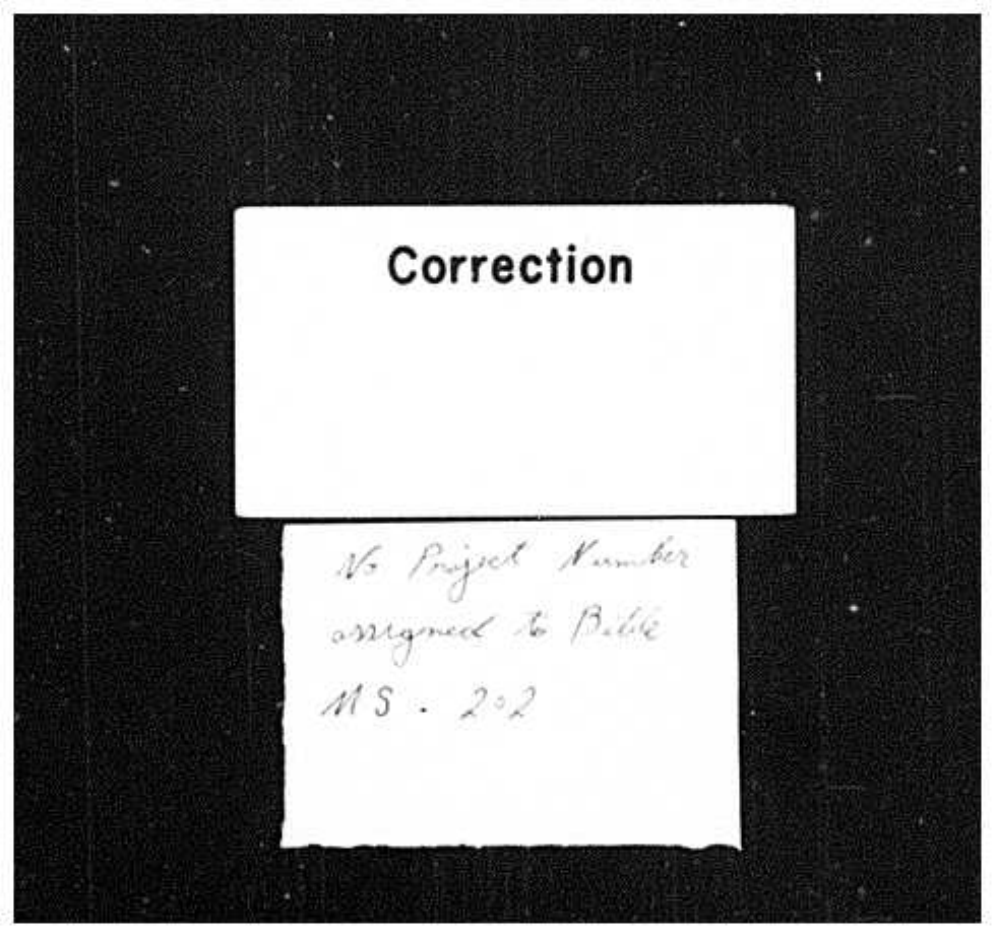 Correction
No Project Number
assigned to Bible
MS. 202